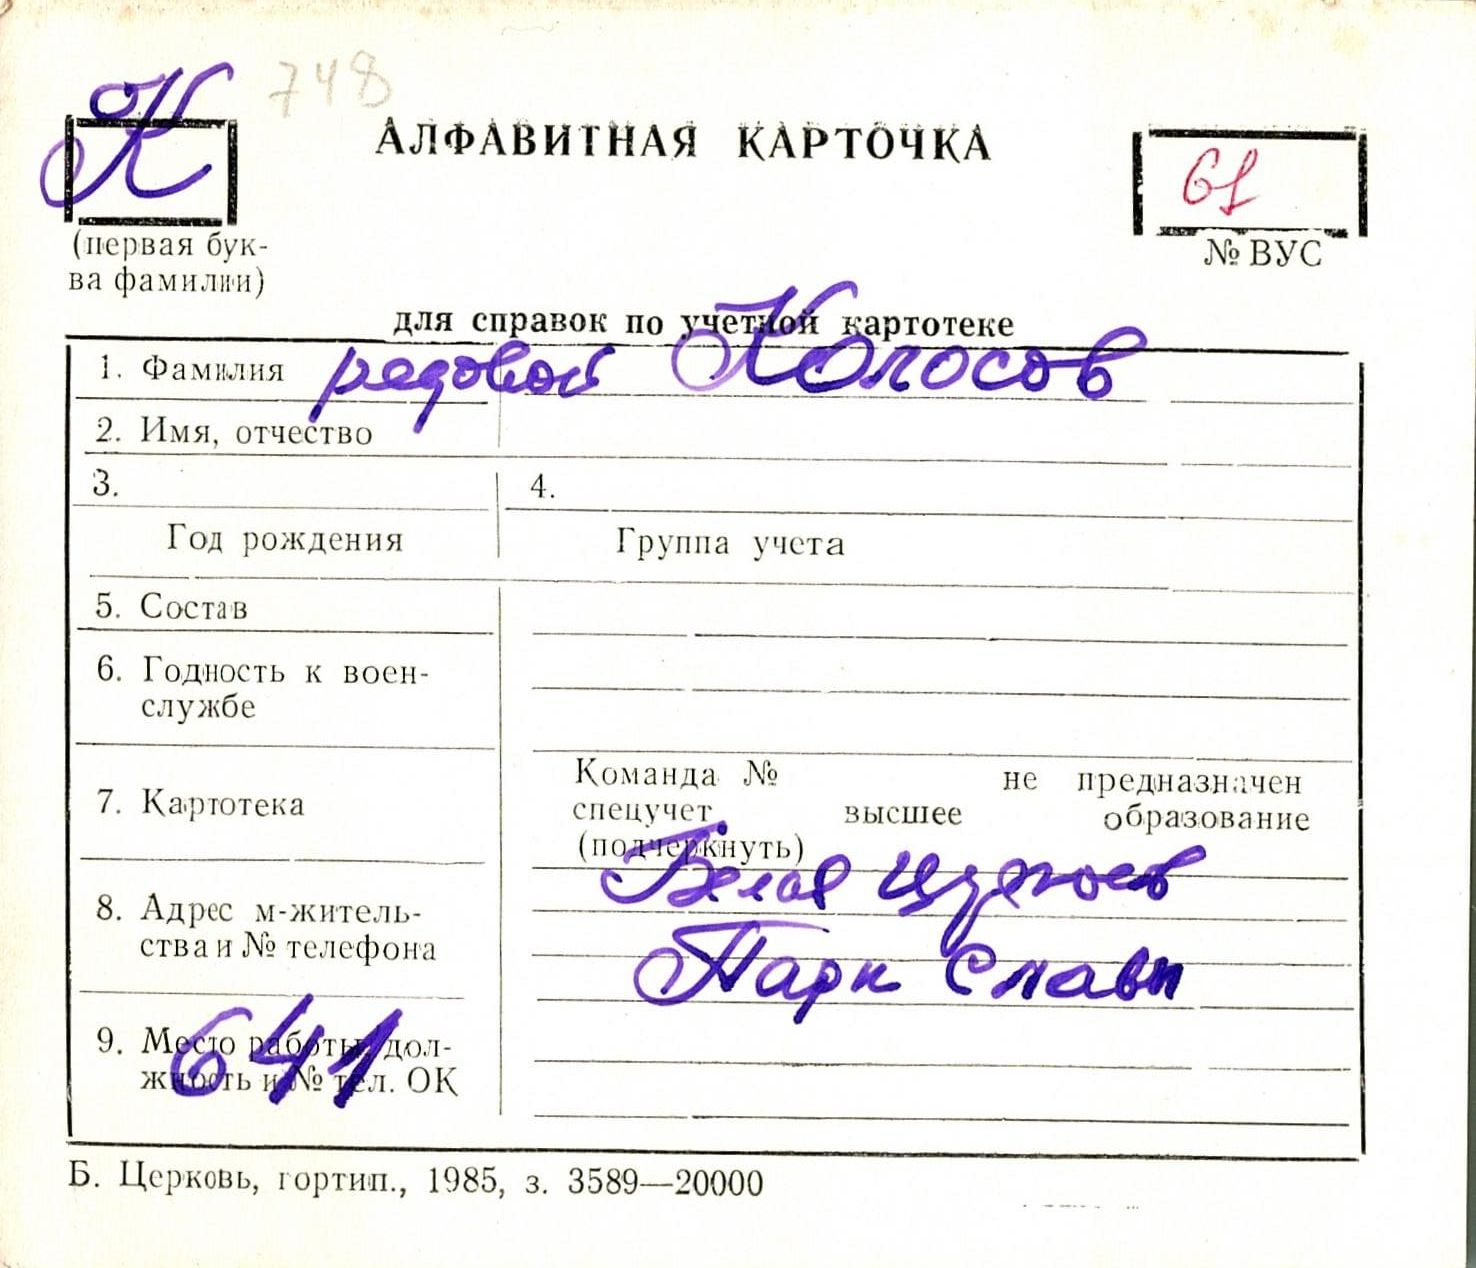 К 748
АЛФАВИТНАЯ КАРТОЧКА
61
(первая бук-
ва фамилии)
№ ВУС
для справок по учетной картотеке
1. Фамилия редовой Колосов
2. Имя, отчество
3. 4.
Год рождения Группа учета
5. Состав
6. Годность к воен-
службе
7. Картотека
Команда № не предназначен
спецучет высшее образование
(подчеркнуть)
8. Адрес м-житель-
ства и № телефона
Белая Церков
Парк Славы
9. Место работы, дол-
жность и № тел. ОК
641
Б. Церковь, гортип., 1985, з. 3589—20000